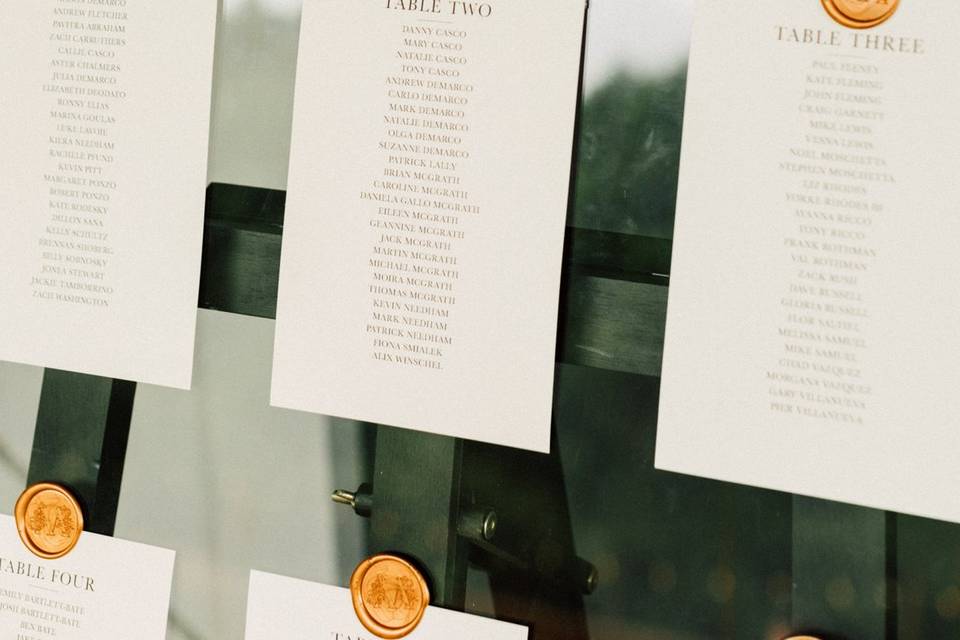 ANDREW FLETCHER
PAVITRA ABRAHAM
ZACH CARRUTHERS
CALLIE CASCO
ASTER CHALMERS
JULIA DEMARCO
ELIZABETH DEODATO
RONNY ELIAS
MARINA GOULAS
LUKE LAVOIE
KIERA NEEDHAM
RACHELE PFUND
KEVIN PITT
MARGARET PONZO
ROBERT PONZO
KATE RODESKY
DILLON SANA
KELLY SCHULTZ
BRENNAN SHOBERG
BILLY SOBNOSKY
JONEA STEWART
JACKIE TAMBORRINO
ZACH WASHINGTON
TABLE TWO
DANNY CASCO
MARY CASCO
NATALIE CASCO
TONY CASCO
ANDREW DEMARCO
CARLO DEMARCO
MARK DEMARCO
NATALIE DEMARCO
OLGA DEMARCO
SUZANNE DEMARCO
PATRICK LALLY
BRIAN MCGRATH
CAROLINE MCGRATH
DANIELA GALLO MCGRATH
EILEEN MCGRATH
GEANNINE MCGRATH
JACK MCGRATH
MARTIN MCGRATH
MICHAEL MCGRATH
MOIRA MCGRATH
THOMAS MCGRATH
KEVIN NEEDHAM
MARK NEEDHAM
PATRICK NEEDHAM
FIONA SMIALEK
ALIX WINSCHEL
TABLE THREE
PAUL FEENEY
KATE FLEMING
JOHN FLEMING
CRAIG GARNETT
MIKE LEWIS
VESNA LEWIS
NOEL MOSCHETTA
STEPHEN MOSCHETTA
LIZ RHODES
YORKE RHODES III
AYANNA RICCO
TONY RICCO
FRANK ROTHMAN
VAL ROTHMAN
ZACK RUSH
DAVE RUSSELL
GLORIA RUSSELL
FLOR SAUTIEL
MELISSA SAMUEL
MIKE SAMUEL
CHAD VAZQUEZ
MORGANA VAZQUEZ
GARY VILLANUEVA
PIER VILLANUEVA
TABLE FOUR
EMILY BARTLETT-BATE
JOSH BARTLETT-BATE
BEN BATE